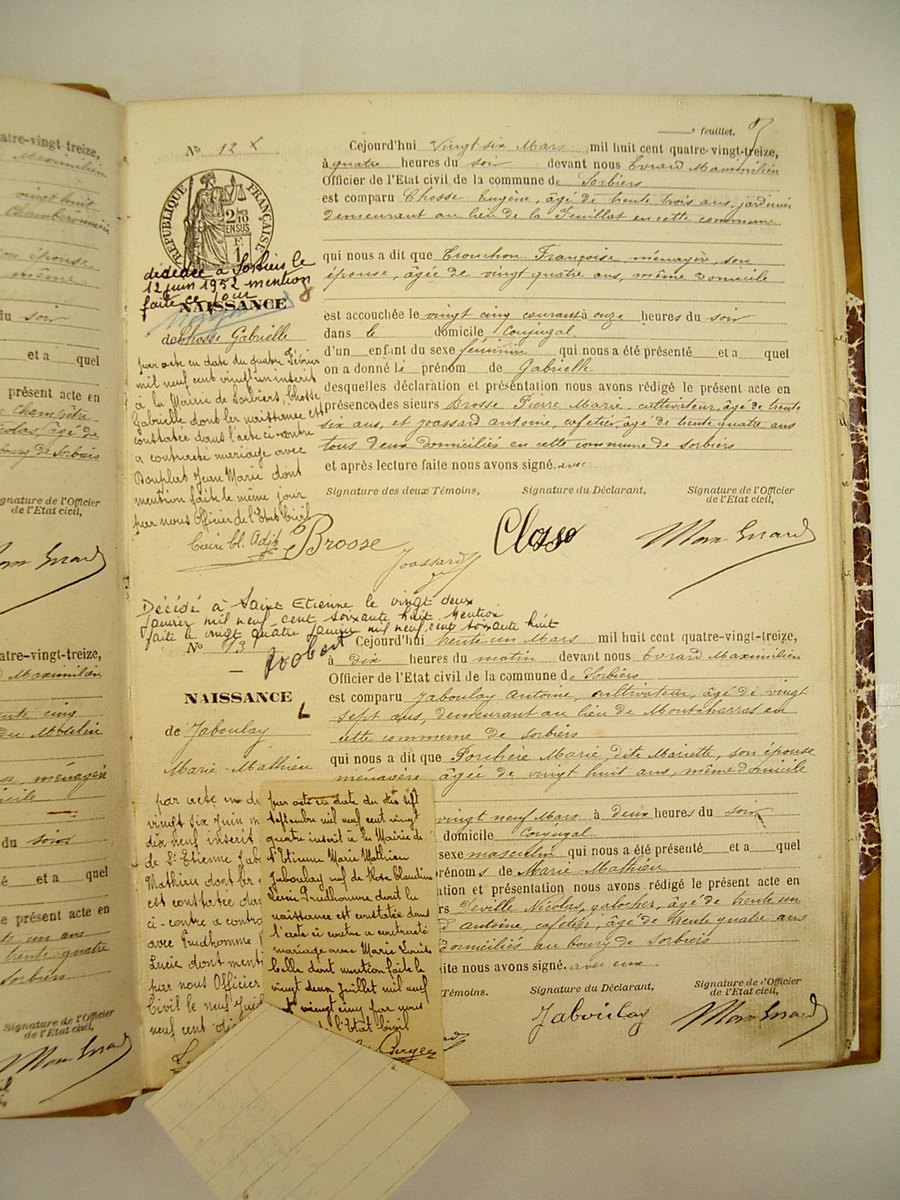 feuillet.
atre-vingt treize,
Maximilien
vingt huit
son épouse
même
du soir
et a quel
présent acte en
Champêtre
Nicolas, âgé de
bourg de Sorbiers
Signature de l'Officier
de l'Etat civil,
atre-vingt-treize,
Maximilien
ménagère
du soir
et a quel
e présent acte en
trente quatre
Sorbiers
Signature de l'Officier
de l'Etat civil,
Nº 12
RÉPUBLIQUE FRANÇAISE
décédée à Sorbiers le
12 juin 1952 mention
faite ce jour
NAISSANCE
de Chosse Gabrielle
par acte en date du quatre Février
mil neuf cent vingt un inscrit
à la Mairie de Sorbiers, Chosse
Gabrielle dont la naissance est
constatée dans l'acte ci-contre
a contracté mariage avec
Jean Marie dont
mention faite le même jour
par nous Officier de l'Etat Civil
Cejourd'hui vingt six Mars mil huit cent quatre-vingt-treize,
à quatre heures du soir devant nous Evrard Maximilien
Officier de l'Etat civil de la commune de Sorbiers
est comparu Chosse Eugène, âgé de trente trois ans, jardinier
demeurant au lieu de la Feuillat en cette commune
qui nous a dit que Trouchon Françoise, ménagère, son
épouse, âgée de vingt quatre ans, même domicile
est accouchée le vingt cinq courant à onze heures du soir
dans le domicile conjugal
d'un enfant du sexe féminin qui nous a été présenté et a quel
on a donné le prénom de Gabrielle
desquelles déclaration et présentation nous avons rédigé le présent acte en
présence des sieurs Brosse Pierre Marie, cultivateur, âgé de trente
six ans, et Joassard Antoine, cafetier, âgé de trente quatre ans
tous deux domiciliés en cette commune de Sorbiers
et après lecture faite nous avons signé.
Signature des deux Témoins, Signature du Déclarant, Signature de l'Officier
de l'Etat civil,
Brosse
Joassard
Décédé à Saint Etienne le vingt deux
janvier mil neuf cent soixante huit, Mention
faite le vingt quatre janvier mil neuf cent soixante huit
Nº 13
NAISSANCE
de Jaboulay
Marie-Mathieu
par acte en d
vingt six Juin m
dix neuf inscrit
de St Etienne Jab
Mathieu dont la
est constatée da
ci-contre a contra
avec Prudhomme
Lucie dont menti
par nous Officier
Civil le neuf Juil
neuf cent dix
par acte en date du dix sept
Septembre mil neuf cent vingt
quatre inscrit à la Mairie de
St Etienne Marie Mathieu
Jaboulay veuf de Rose Claudine
Lucie Prudhomme dont la
naissance est constatée dans
l'acte ci contre a contracté
mariage avec Marie Louise
Celle dont mention faite le
vingt deux Juillet mil neuf
cent vingt cinq par nous
de l'Etat Civil
Cejourd'hui trente un Mars mil huit cent quatre-vingt-treize,
à dix heures du matin devant nous Evrard Maximilien
Officier de l'Etat civil de la commune de Sorbiers
est comparu Jaboulay Antoine, cultivateur, âgé de vingt
sept ans, demeurant au lieu de Montcharras en
cette commune de Sorbiers
qui nous a dit que Forchère Marie, dite Mariette, son épouse
ménagère âgée de vingt huit ans, même domicile
vingt neuf Mars à deux heures du soir
domicile Conjugal
sexe masculin qui nous a été présenté et a quel
prénoms de Marie Mathieu
ation et présentation nous avons rédigé le présent acte en
rs Deville Nicolas, galocher, âgé de trente un
Antoine, cafetier, âgé de trente quatre ans
domiciliés au bourg de Sorbiers
ite nous avons signé.
Témoins, Signature du Déclarant, Signature de l'Officier
de l'Etat civil,
Jaboulay